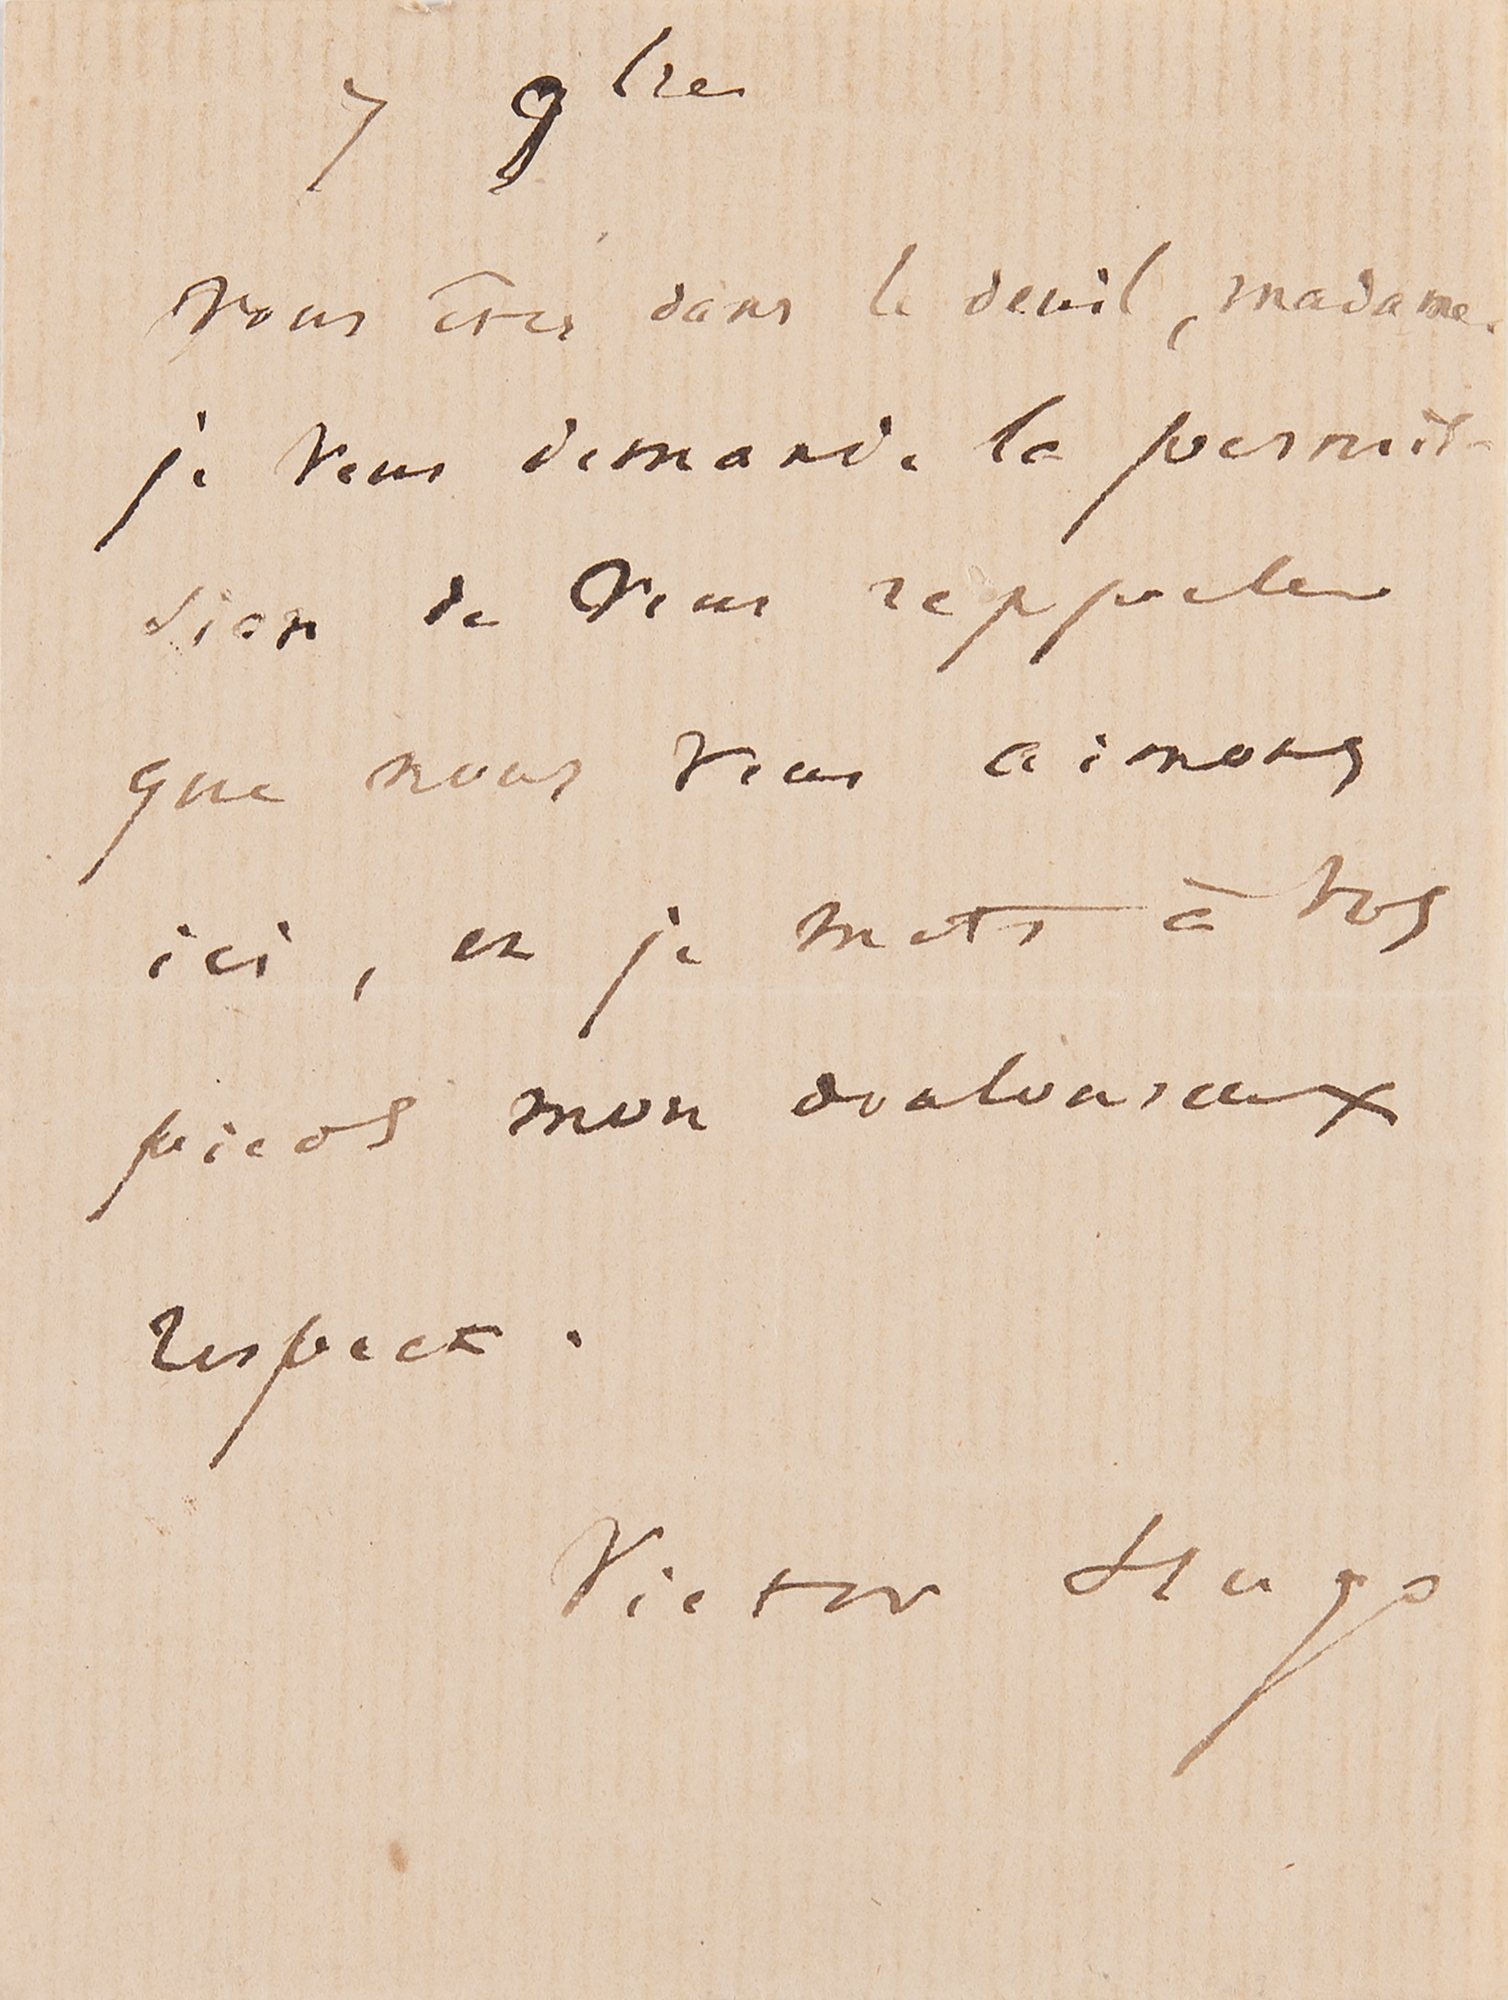 7 9bre
Vous êtes dans le deuil, madame.
je vous demande la permis-
sion de vous rappeler
que nous vous aimons
ici, et je mets à vos
pieds mon douloureux
respect.
Victor Hugo